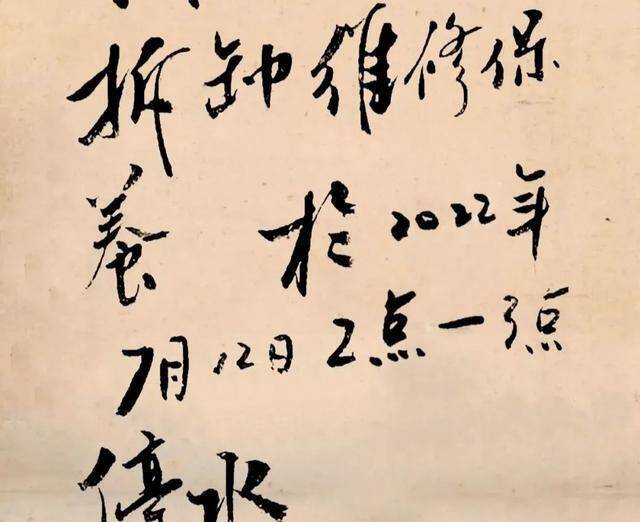 拆卸维修保
养 于2022年
7月12日2点-5点
停水